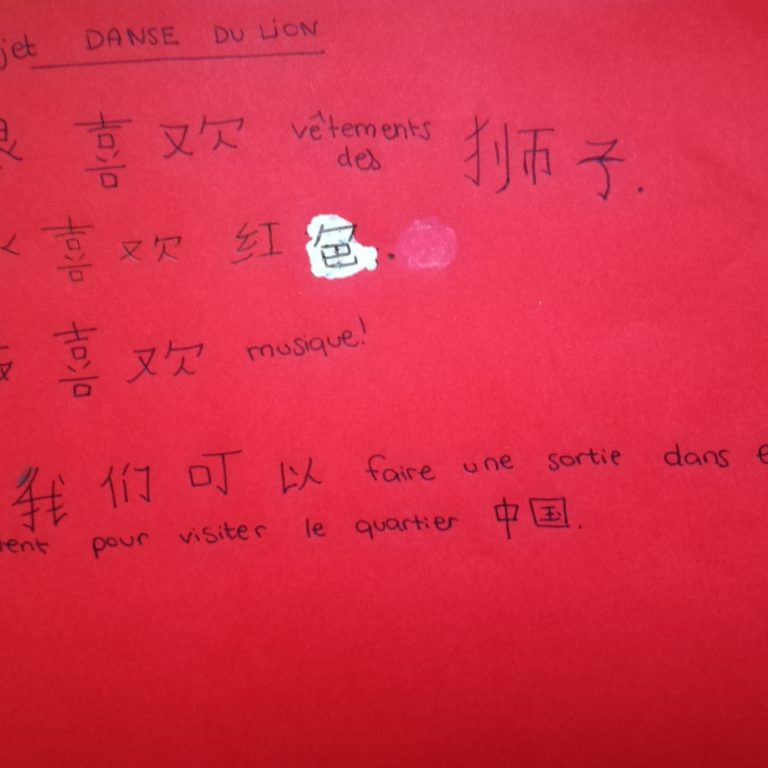 jet DANSE DU LION
喜欢 vêtements des 狮子.
喜欢 红色.
喜欢 musique!
我们可以 faire une sortie dans
pour visiter le quartier 中国.